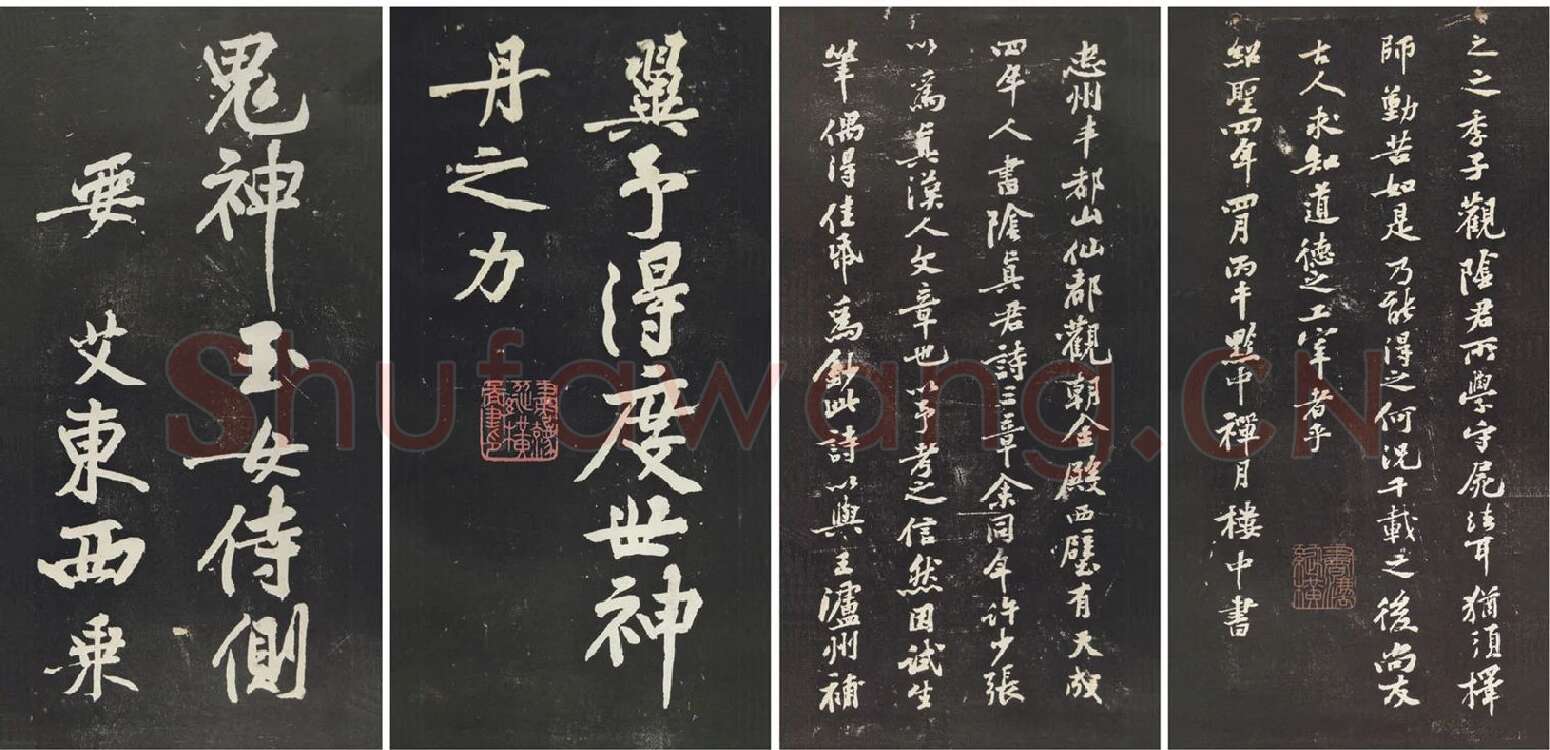 鬼神玉女侍側
要艾東西乗
翼予得度世神
丹之力
忠州丰都山仙都觀朝金殿西壁有天成
四年人書陰真君詩三章余同年許少張
以為真漢人文章也以予考之信然因試生
筆偶得佳紙為鈔此詩以與王瀘州補
之之季子觀陰君所學守屍法耳猶須擇
師勤苦如是乃能得之何況千載之後尚友
古人求知道德之工宰者乎
紹聖四年四月丙午黔中禪月樓中書
Shufawang.CN